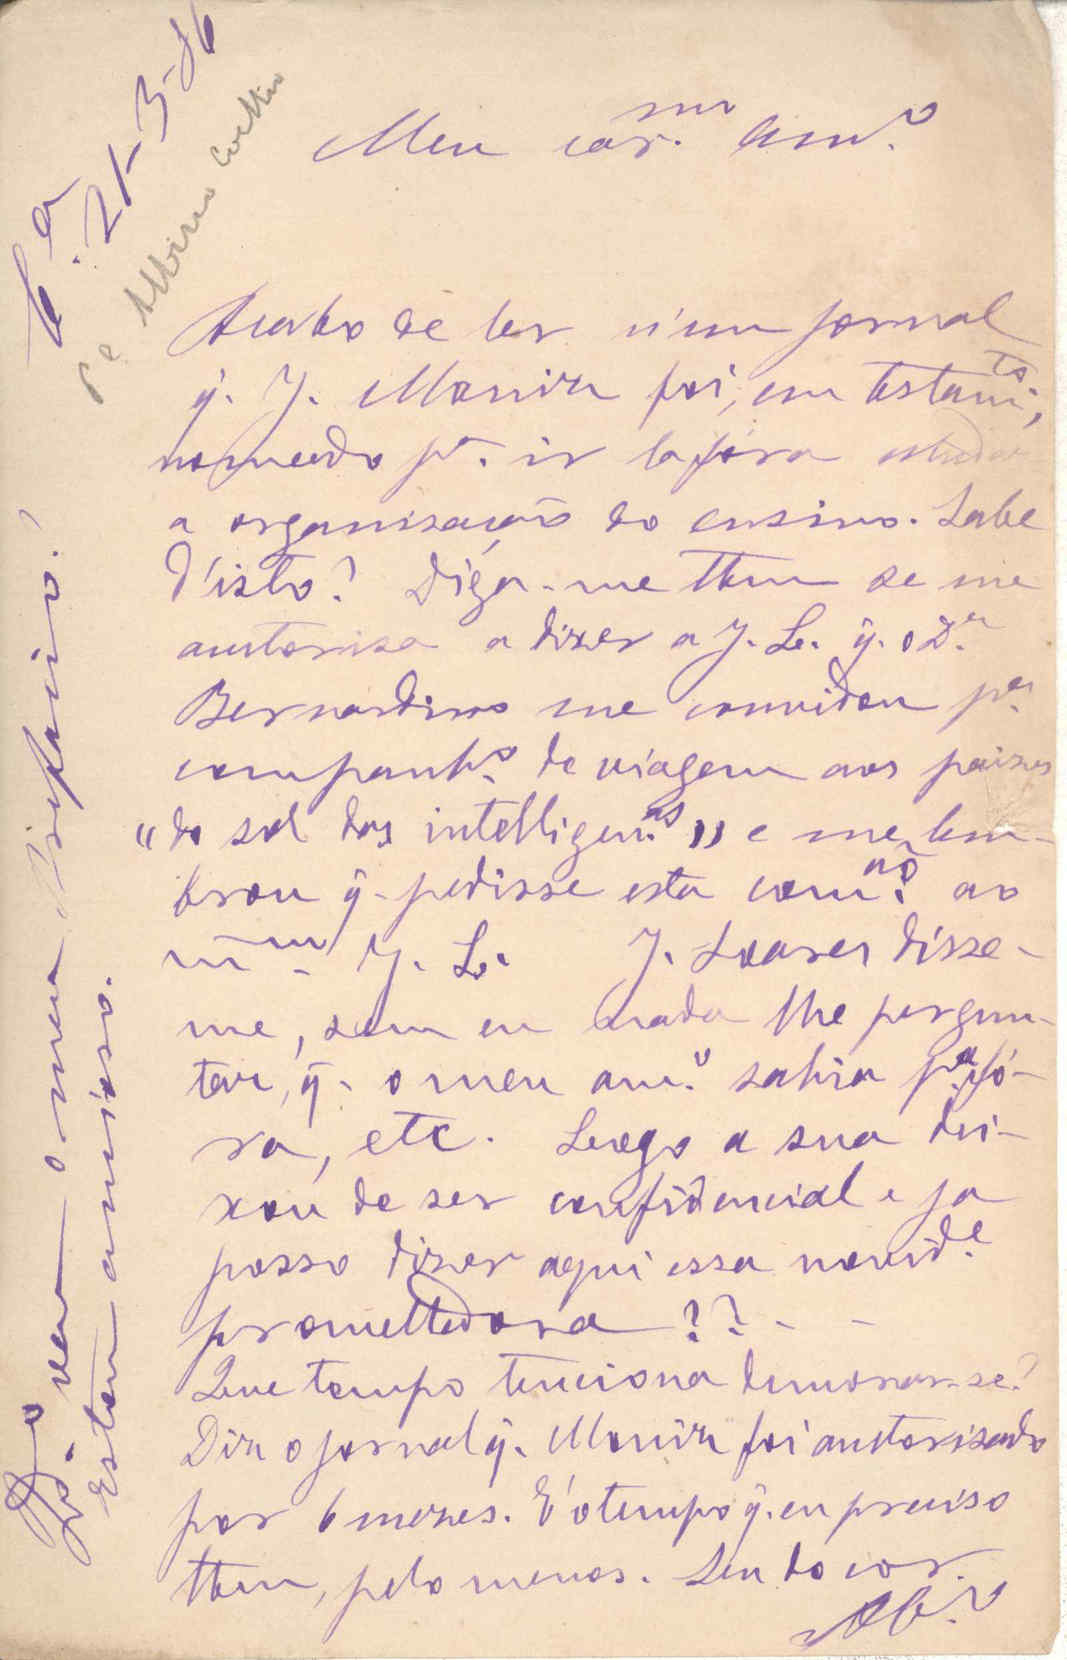 C.ª 21-3-86
P.e Albino Coelho
Meu car.mo am.o
Acabo de ler n'um jornal
q̃. J. Moniz foi, em testam.to,
nomeado p.ª ir la fóra estudar
a organisação do ensino. Sabe
d'isto? Diga-me tbem se me
autorisa a dizer a J. L. q̃. o D.r
Bernardino me convidou p.ª
companh.o de viagem aos paizes
"do sol das intelligen.as" e me lem-
brou q̃. pedisse esta com.ão ao
m.mo J. L. J. Soares disse-
me, sem eu nada lhe pergun-
tar, q̃. o meu am.o sahia p.ª fó-
ra, etc. Logo a sua dei-
xou de ser confidencial e ja
posso dizer aqui essa novid.e
promettedora ??--
Que tempo tenciona demorar-se?
Diz o jornal q̃. Moniz foi autorisado
por 6 mezes. E' o tempo q̃. eu preciso
tbem, pelo menos. Seu do cor.
Ab.o
vem o meu
Estou ancioso.